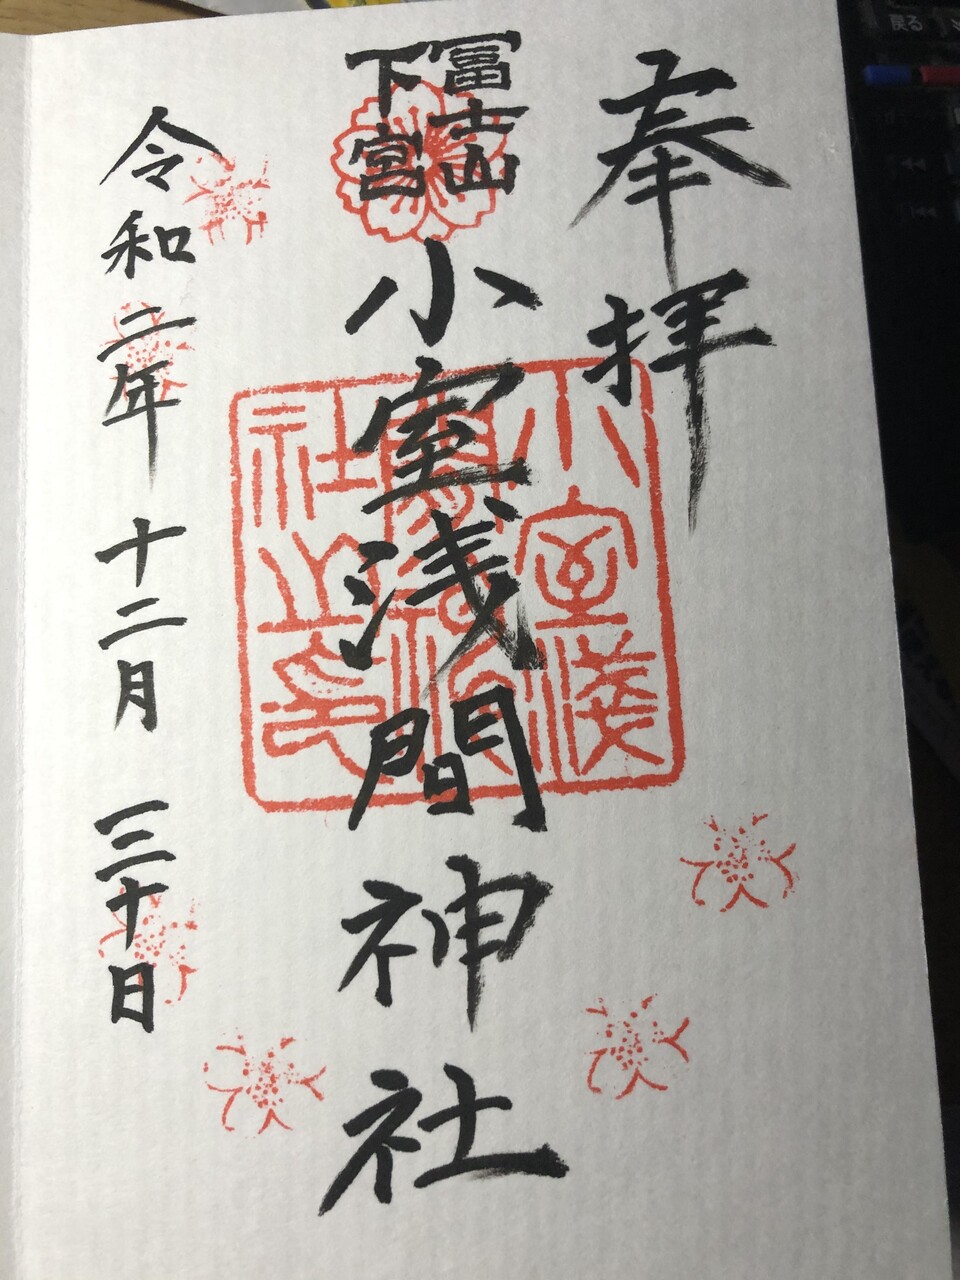 奉拝
冨士山
下宮
小室浅間神社
令和二年 十二月 三十日
戻る